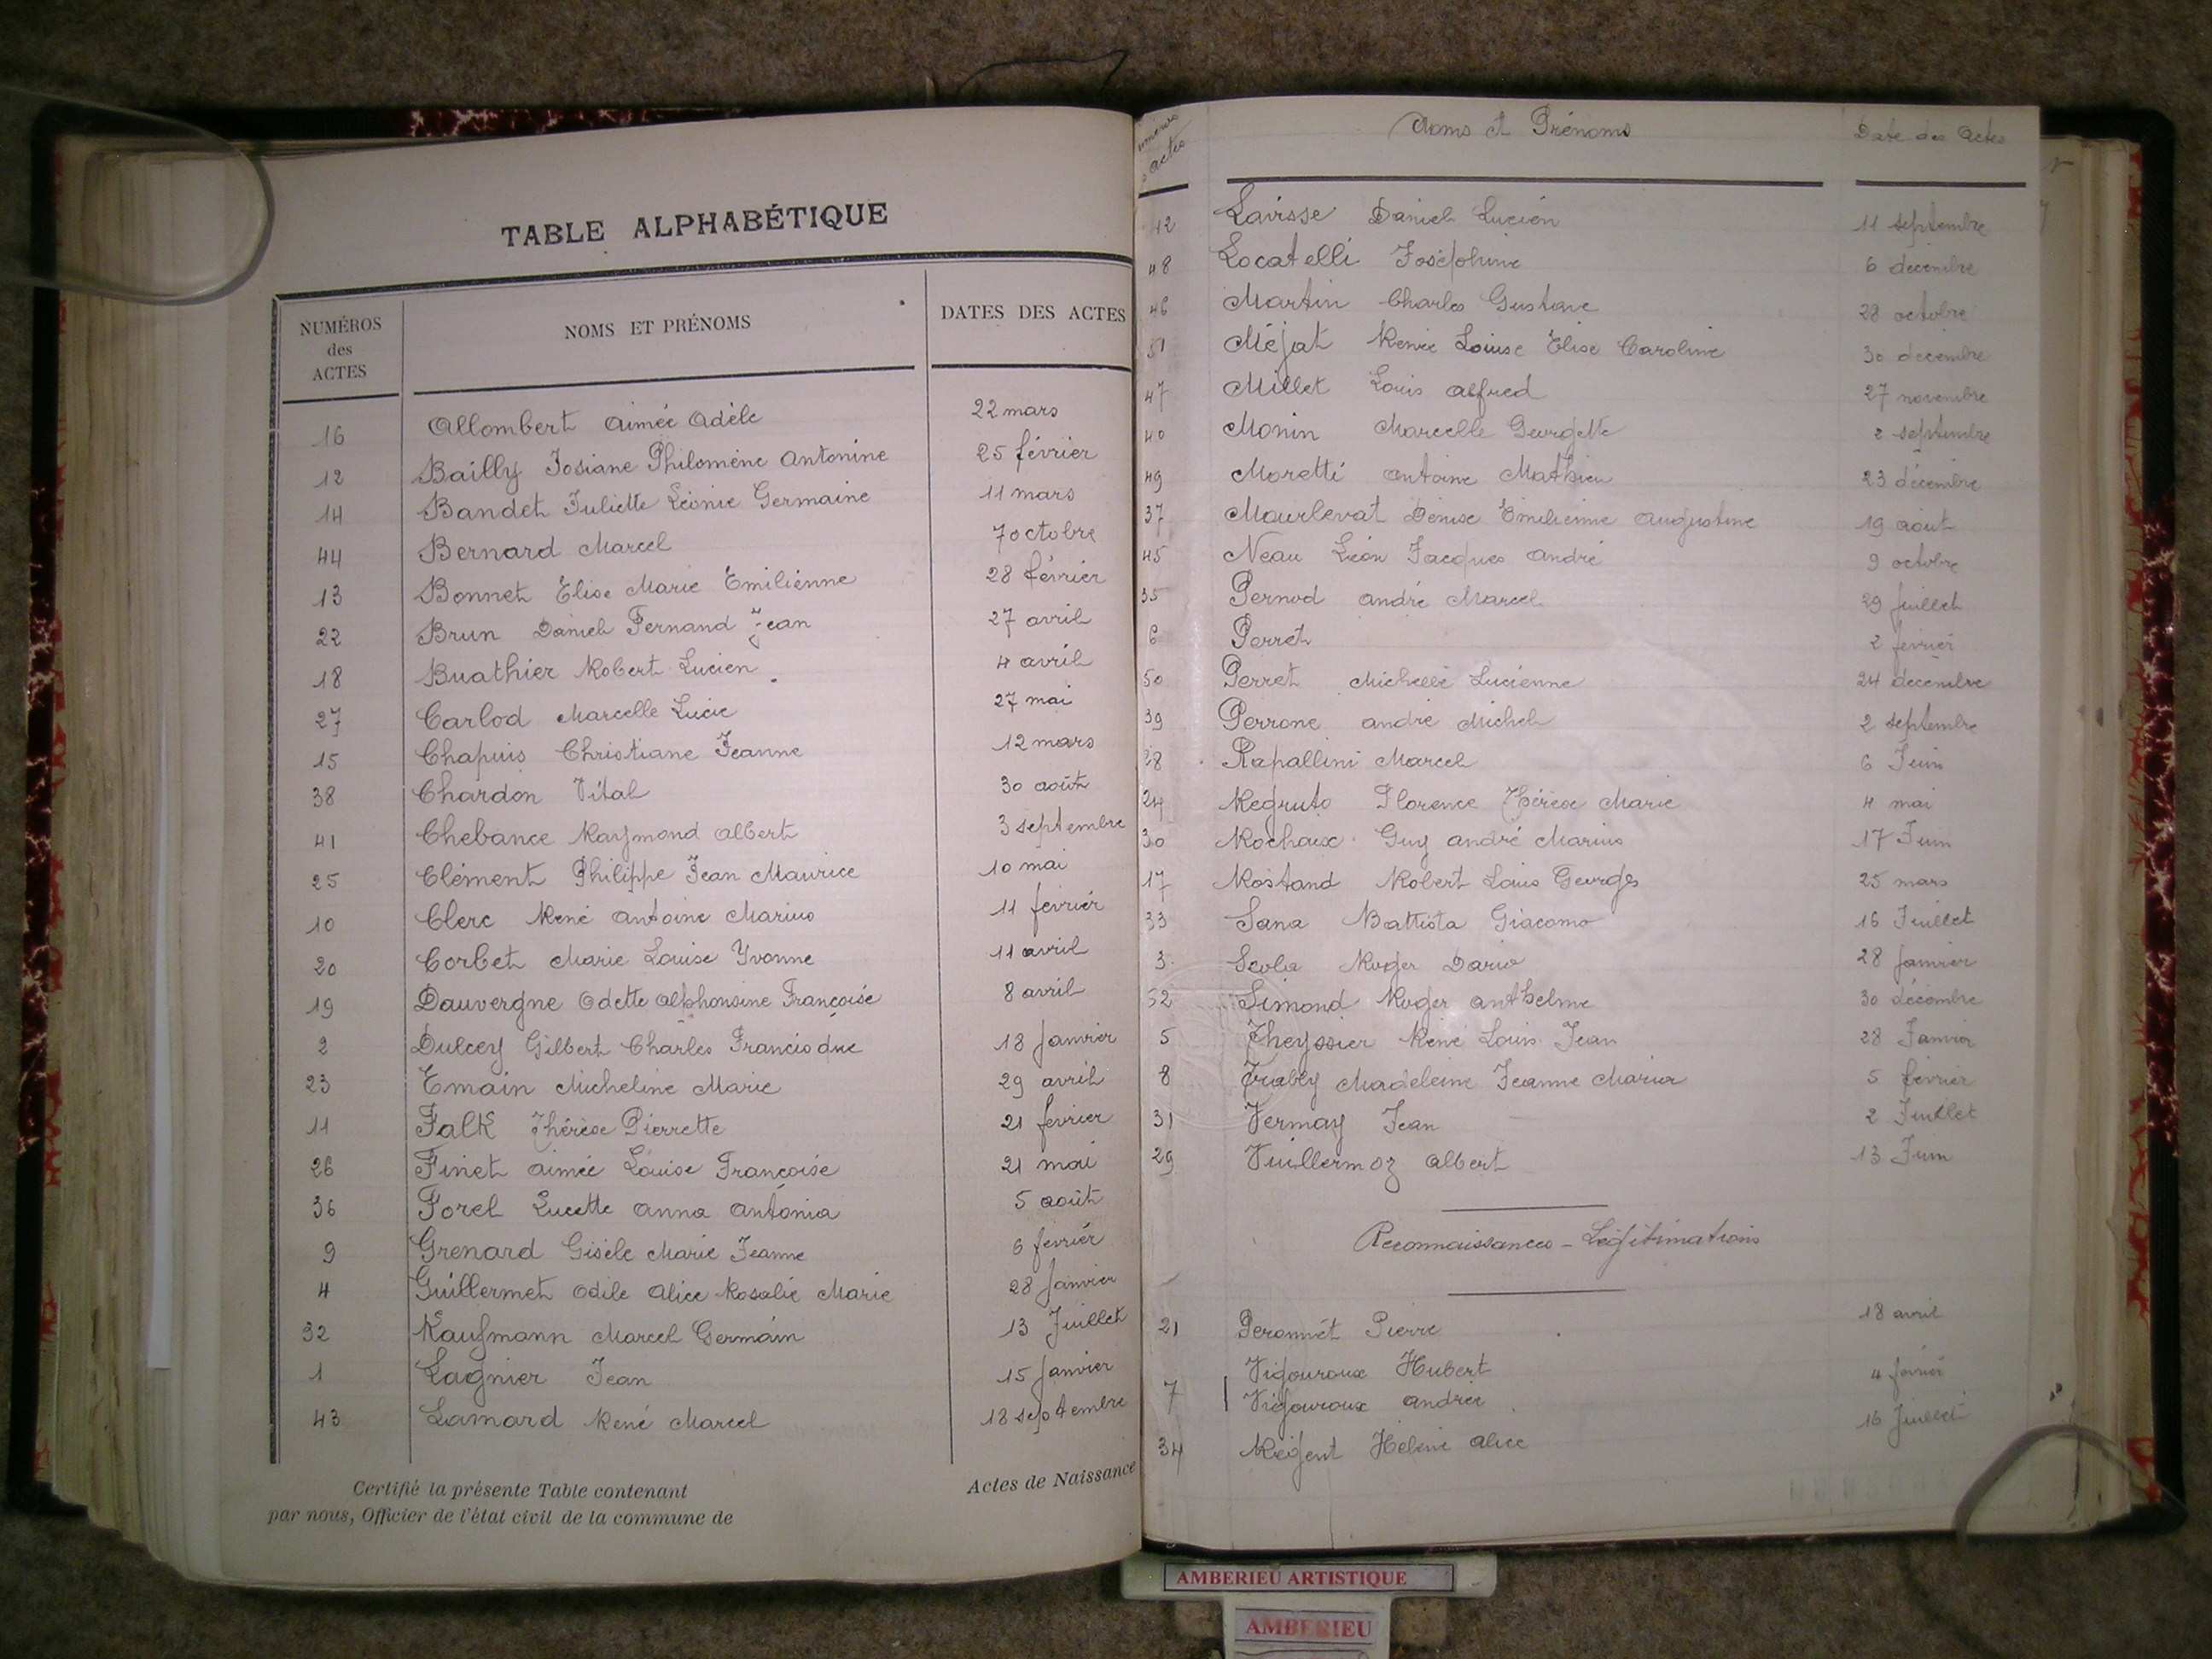 TABLE ALPHABÉTIQUE
NUMÉROS des ACTES NOMS ET PRÉNOMS DATES DES ACTES
16 Allombert Aimée Adèle 22 mars
12 Bailly Josiane Philomène Antonine 25 février
14 Bandet Juliette Léonie Germaine 11 mars
44 Bernard Marcel 7 octobre
13 Bonnet Elise Marie Emilienne 28 février
22 Brun Daniel Fernand Jean 27 avril
18 Buathier Robert Lucien 4 avril
27 Carlod Marcelle Lucie 27 mai
15 Chapuis Christiane Jeanne 12 mars
38 Chardon Vital 30 août
41 Chebance Raymond Albert 3 septembre
25 Clément Philippe Jean Maurice 10 mai
10 Clerc René Antoine Marius 11 février
20 Corbet Marie Louise Yvonne 11 avril
19 Dauvergne Odette Alphonsine Françoise 8 avril
2 Dulcey Gilbert Charles 18 Janvier
23 Emain Micheline Marie 29 avril
11 Falk Thérèse Pierrette 21 fevrier
26 Finet Aimée Louise Françoise 21 mai
36 Forel Lucette Anna Antonia 5 août
9 Grenard Gisèle Marie Jeanne 6 fevrier
4 Guillermet Odile Alice Rosalie Marie 28 Janvier
32 Kaufmann Marcel Germain 13 Juillet
1 Lagnier Jean 15 Janvier
43 Lamard René Marcel 18 septembre
Certifié la présente Table contenant Actes de Naissance
par nous, Officier de l'état civil de la commune de
Actes Noms et Prénoms Date des Actes
42 Lavisse Daniel Lucien 11 septembre
48 Locatelli Joséphine 6 décembre
46 Martin Charles Gustave 28 octobre
51 Méjat Renée Louise Elise Caroline 30 decembre
47 Millet Louis Alfred 27 novembre
40 Monin Marcelle Georgette 2 septembre
49 Moretti Antoine Mathieu 23 décembre
37 Mourlevat Denise Emilienne Augustine 19 août
45 Neau Léon Jacques André 9 octobre
35 Pernod André Marcel 29 juillet
6 Perret 2 fevrier
50 Perret Michelle Lucienne 24 decembre
39 Perrone André Michel 2 septembre
28 Rapallini Marcel 6 Juin
24 Regruto Florence Thérèse Marie 4 mai
30 Rochaix Guy André Marius 17 Juin
17 Rostand Robert Louis Georges 25 mars
33 Sana Battista Giacomo 16 Juillet
3 Scola Roger Dario 28 Janvier
52 Simond Roger Anthelme 30 décembre
5 Theyssier René Louis Jean 28 Janvier
8 Trably Madeleine Jeanne Maria 5 février
31 Vermay Jean 2 Juillet
29 Vuillermoz Albert 13 Juin
Reconnaissances - Légitimations
21 Peronnet Pierre 18 avril
Vigouroux Hubert 4 fevrier
7 Vigouroux Andrée
34 Régent Hélène Alice 16 Juillet
AMBERIEU ARTISTIQUE
AMBERIEU